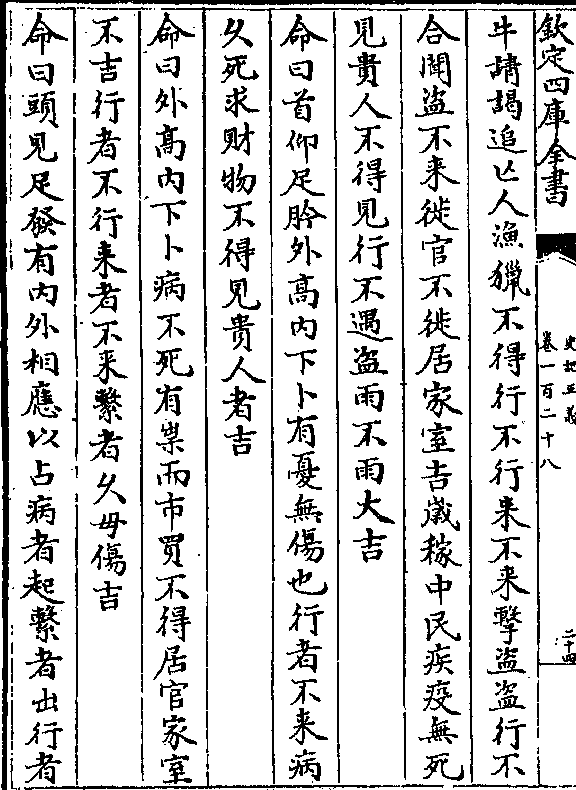 欽定四庫全書
史記正義
卷一百二十八
二十四
牛請謁追亡人漁獵不得行不行来不来擊盜盜行不
合聞盜不来徙官不徙居家室吉歲稼中民疾疫無死
見貴人不得見行不遇盜雨不雨大吉
命曰首仰足肣外高内下卜有憂無傷也行者不来病
久死求财物不得見貴人者吉
命曰外高内下卜病不死有祟而市買不得居官家室
不吉行者不行来者不来繫者久毋傷吉
命曰頭見足發有内外相應以占病者起繫者出行者